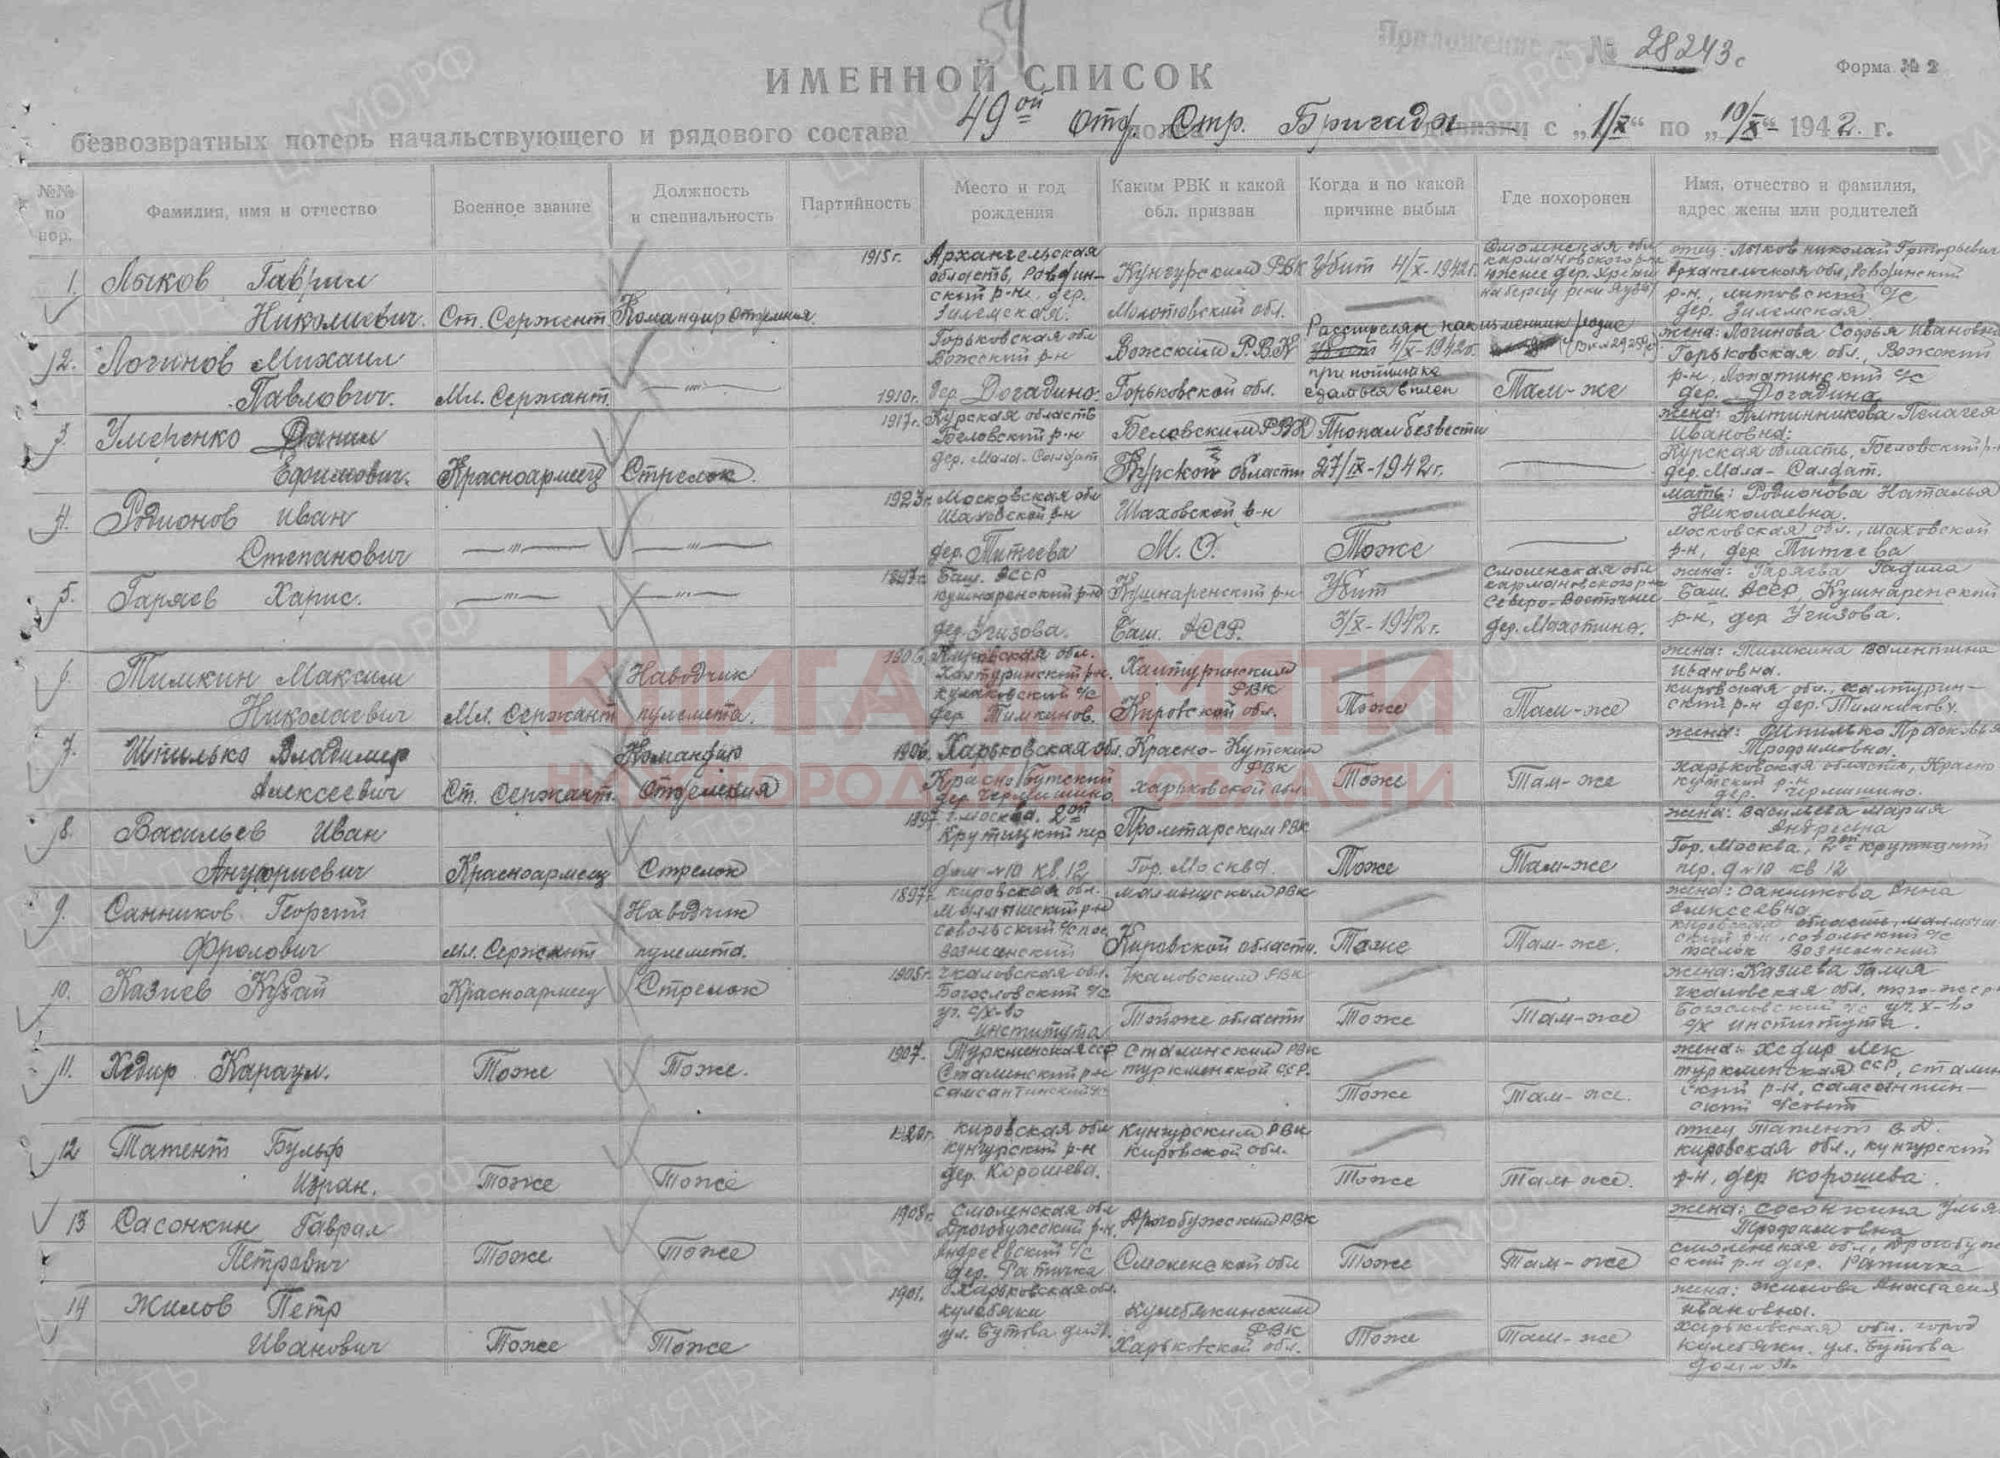 54
Приложение к № 28243с
Форма № 2
ИМЕННОЙ СПИСОК
безвозвратных потерь начальствующего и рядового состава 49ой отд. Стр. Бригады с „1/X“ по „10/X“ 1942 г.
№№ по пор.
Фамилия, имя и отчество
Военное звание
Должность и специальность
Партийность
Место и год рождения
Каким РВК и какой обл. призван
Когда и по какой причине выбыл
Где похоронен
Имя, отчество и фамилия, адрес жены или родителей
1. Лыков Гаврил Николаевич. Ст. Сержент Командир отделения. 1915г. Архангельская область, р-н, дер. Кунгурским РВК Молотовской обл. Убит 4/X-1942г. Смоленская обл. Кармановского р-на южнее дер. на берегу реки отец: Лыков Николай Григорьевич Архангельская обл, р-н, с/с дер.
2. Логинов Михаил Павлович. Мл. Сержант. —"— 1910г. Горьковская обл Вожский р-н дер. Догадино. Вожским Р.В.К Горьковской обл. Расстрелян как изменник родине Убит 4/X-1942г. при попытке сдаться в плен Там-же жена: Логинова Софья Ивановна Горьковская обл., Вожский р-н, Лопатинский с/с дер. Догадина
3. Умеренко Данил Ефимович. Красноармеец Стрелок. 1917г. Курская область Беловский р-н дер. Мала-Солдат Беловским РВК Курской области Пропал безвести 27/IX-1942г. жена: Пелагея Ивановна: Курская область, Беловский р-н дер. Мала-Солдат.
4. Родионов Иван Степанович —"— —"— 1923г. Московская обл Шаховской р-н дер. Титеева Шаховской р-н М. О. Тоже мать: Родионова Наталья Николаевна. Московская обл., Шаховской р-н, дер Титеева
5. Гаряев Харис. —"— —"— 1897г. Баш. АССР Кушнаренский р-н дер. Угизова. Кушнаренский р-н Баш. АССР. Убит 3/X-1942г. Смоленская обл Кармановского р-на Северо-Восточнее дер. Махотина. жена: Гаряева Баш. АССР, Кушнаренский р-н, дер Угизова.
6. Тимкин Максим Николаевич Мл. Сержант Наводчик пулемета. 1906. Кировская обл. Халтуринский р-н. Кулаковский с/с дер Тимкинов. Халтуринским РВК Кировской обл. Тоже Там-же жена: Тимкина Валентина Ивановна. Кировская обл, Халтурин-ский р-н дер.
7. Шпилько Владимир Алексеевич Ст. Сержант. Командир Отделения 1906. Харьковская обл. Красно-Кутский дер. Красно-Кутским РВК Харьковской обл Тоже Там-же жена: Шпилько Прасковья Трофимовна. Харьковская область, Красно кутский р-н дер.
8. Васильев Иван Ануфриевич Красноармеец Стрелок 1897 г. Москва. 2ой Крутицкий пер дом №10 кв. 12 Пролетарским РВК Гор. Москва. Тоже Там-же жена: Васильева Мария Андреевна Гор. Москва, 2ой Крутицкий пер. д №10 кв 12
9. Санников Георгий Фролович Мл. Сержант Наводчик пулемета. 1897г. Кировская обл. Малмыжский р-н Вознесенский Малмыжским РВК Кировской области. Тоже Там-же. жена: Санникова Анна Алексеевна Кировская область, Малмыж-ский р-н, с/с Вознесенский
10. Казиев Кубай Красноармеец Стрелок 1905г. Чкаловская обл. Богословский с/с уч. с/х-во института Чкаловским РВК Тойоже области Тоже Там-же жена: Казиева Галия Чкаловская обл. Богословский с/с уч. х-во с/х института.
11. Хедир Караул. Тоже Тоже. 1907. Туркменская ССР Сталинский р-н Самсантинский с/с Сталинским РВК Туркменской ССР. Тоже Там-же. жена: Хедир Лек Туркменская ССР, Сталин-ский р-н, Самсантин-ский с/совет
12 Татент Бульф Изран. Тоже Тоже 1920г. Кировская обл Кунгурский р-н дер. Корошева. Кунгурским РВК Кировской обл. Тоже Там же. отец Татент В.Д. Кировская обл., Кунгурский р-н, дер Корошева.
13 Сасонкин Гаврил Петрович Тоже Тоже 1908г. Смоленская обл Дрогобужский р-н. Андреевский с/с дер. Ратичка Дрогобужским РВК Смоленской обл Тоже Там-же жена: Сосонкина Трофимовна Смоленская обл, Дрогобуж-ский р-н дер. Ратичка
14 Жилов Петр Иванович Тоже Тоже 1901. Харьковская обл. Кулебяки ул. Бутова Кулебякинским РВК Харьковской обл. Тоже Там-же жена: Жилова Анастасия Ивановна. Харьковская обл. город Кулебяки. ул. Бутова
КНИГА ПАМЯТИ
НИЖЕГОРОДСКОЙ ОБЛАСТИ
ЦАМО.РФ
ПАМЯТЬ НАРОДА